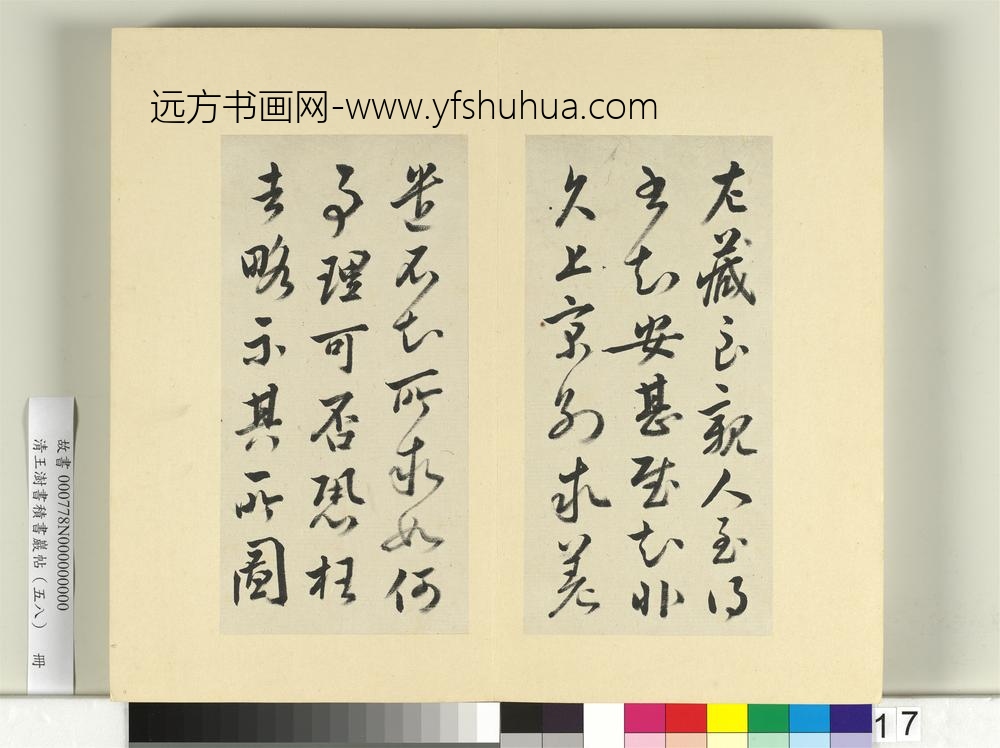 远方书画网-www.yfshuhua.com
左藏良親人至得
書知安甚慰知非
久上京別求差
遣不知所求如何
事理可否恐枉
去略示其所圖
故書 000778N000000000
清王澍書積書巖帖(五八) 冊
17